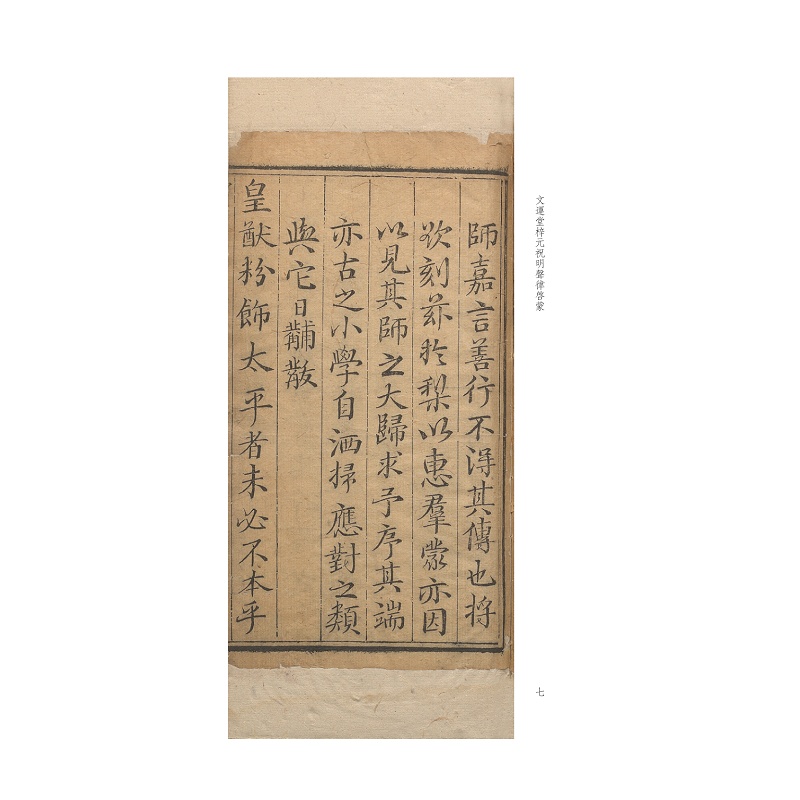 文運堂梓元祝明聲律啓蒙
師嘉言善行不淂其傳也将
欲刻茲扵梨以惠羣蒙亦因
以見其師之大歸求予序其端
亦古之小學自洒掃應對之類
與它日黼黻
皇猷粉飾太平者未必不本乎
七